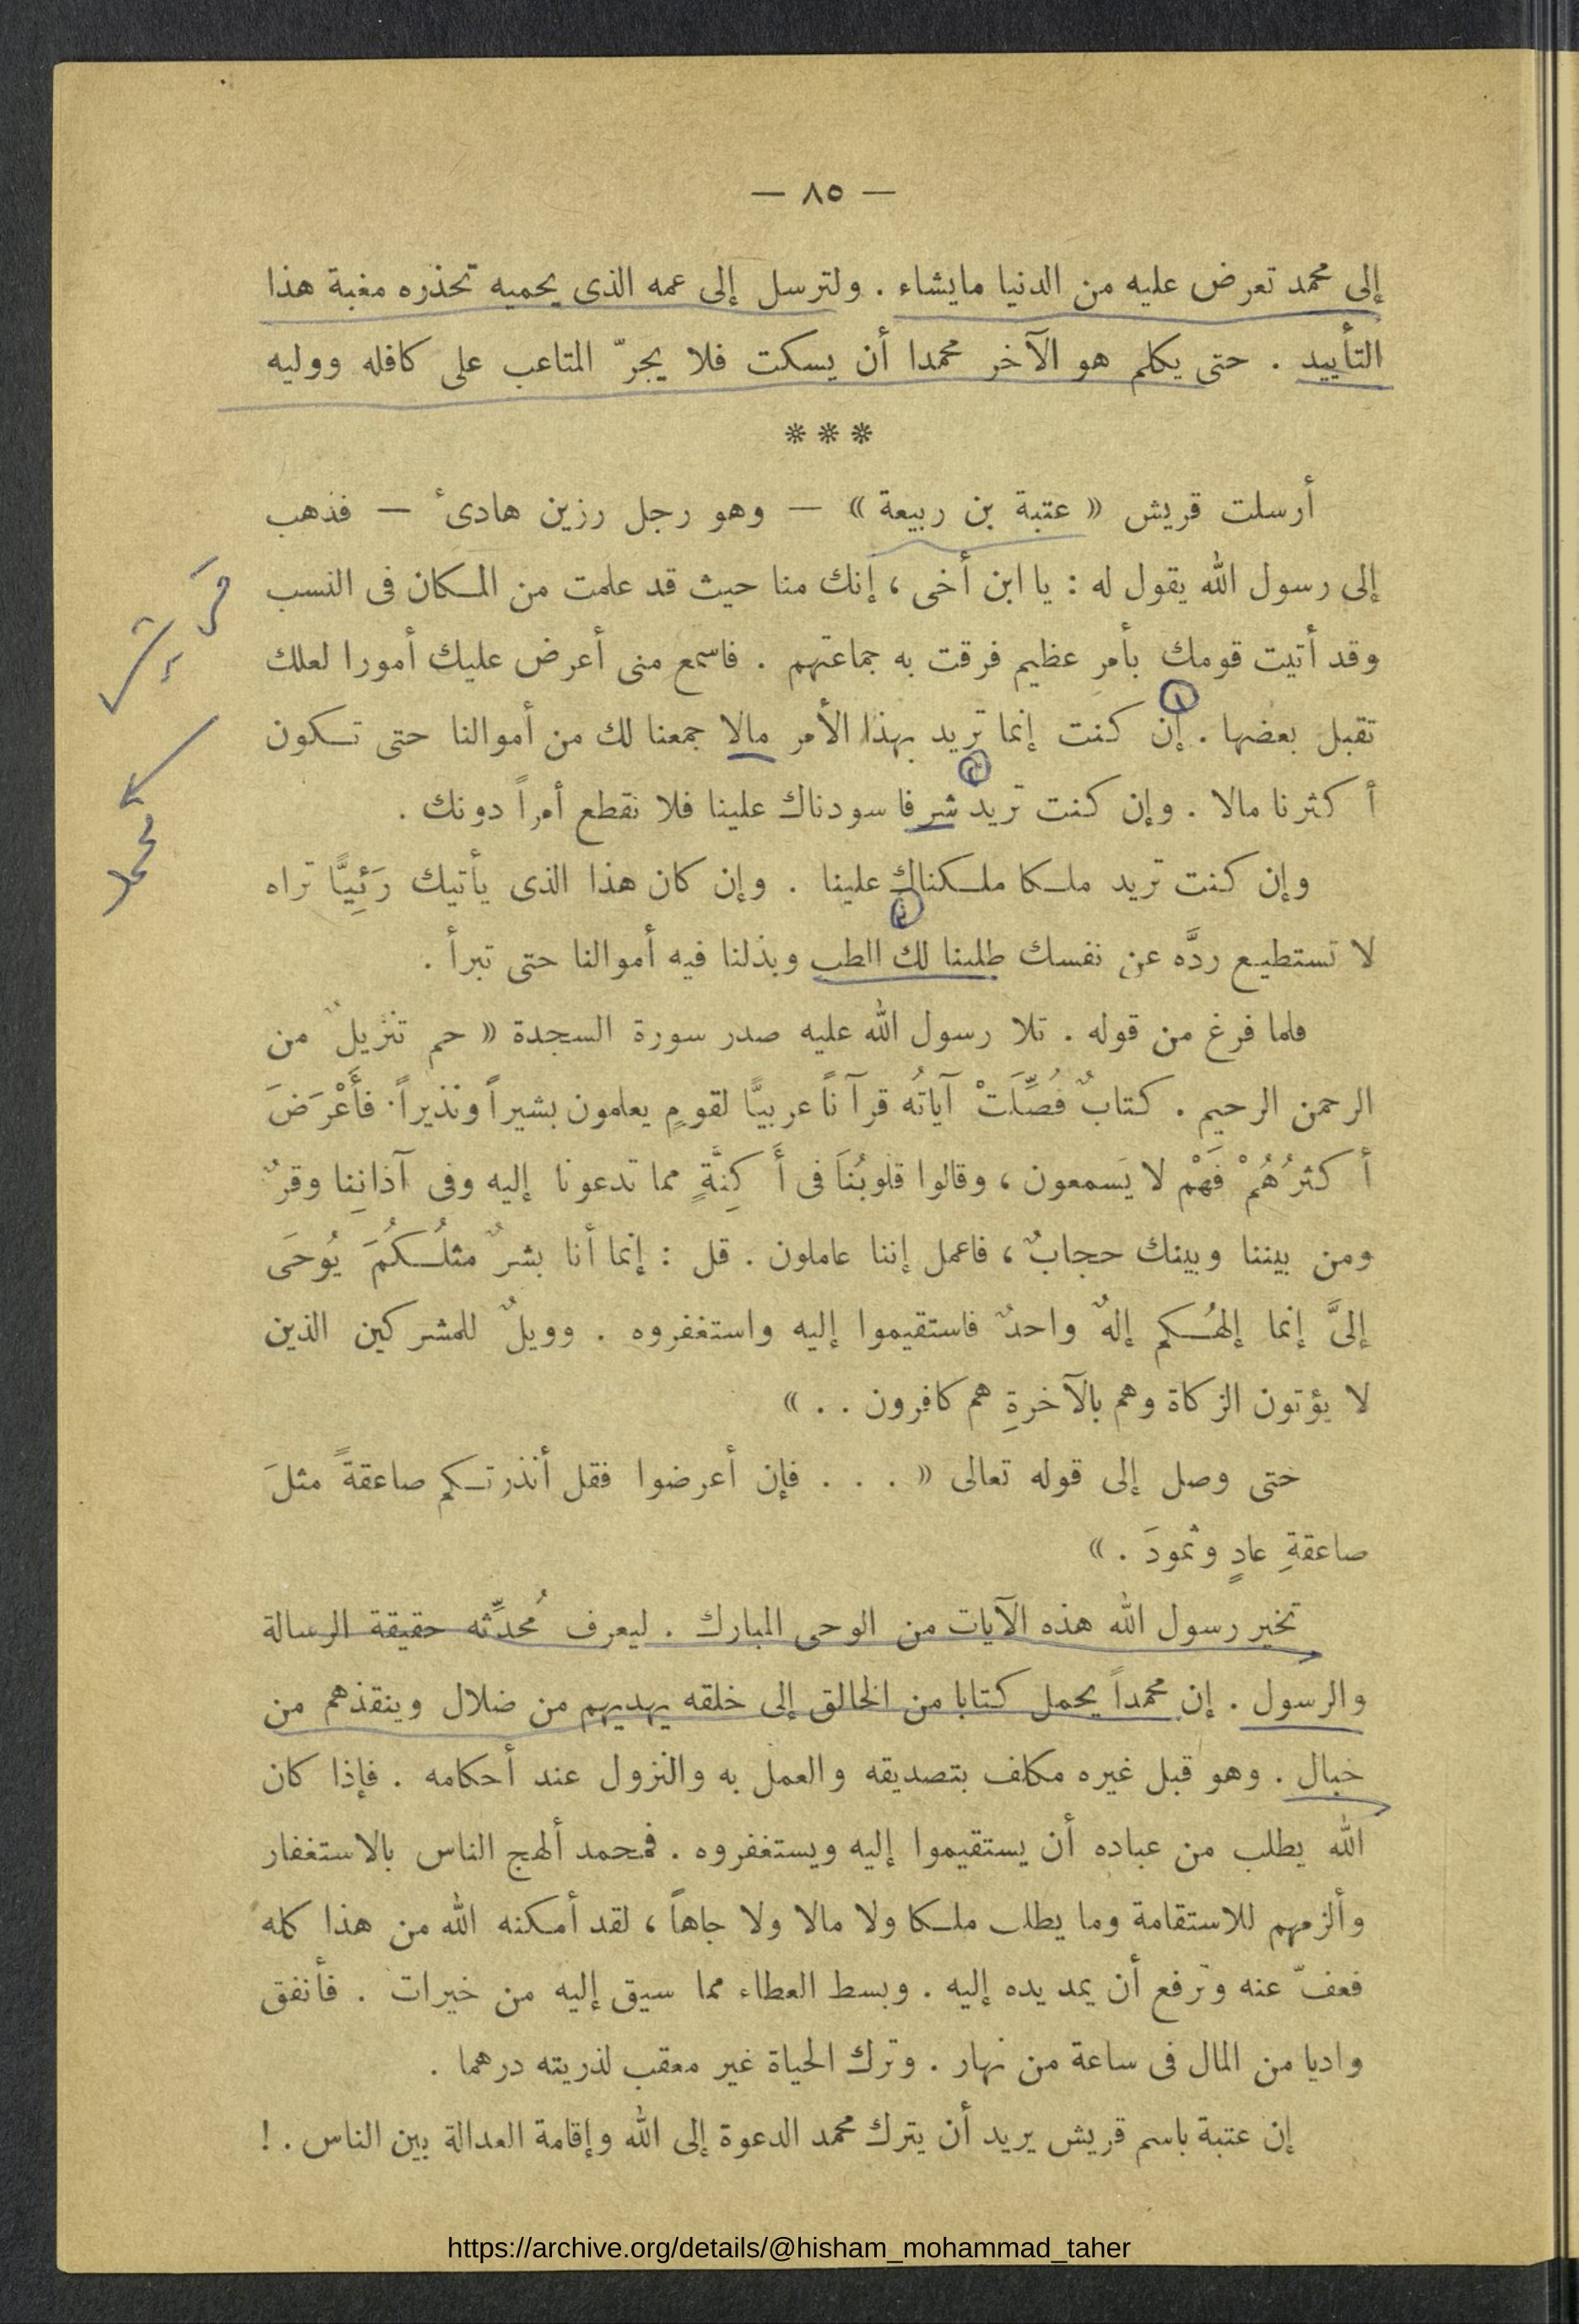 — ٨٥ —
إلى محمد تعرض عليه من الدنيا مايشاء . ولترسل إلى عمه الذى يحميه تحذره مغبة هذا
التأييد . حتى يكلم هو الآخر محمدا أن يسكت فلا يجرّ المتاعب على كافله ووليه
***
أرسلت قريش « عتبة بن ربيعة » — وهو رجل رزين هادىء — فذهب
إلى رسول الله يقول له : يا ابن أخى ، إنك منا حيث قد علمت من المكان فى النسب
وقد أتيت قومك بأمر عظيم فرقت به جماعتهم . فاسمع منى أعرض عليك أمورا لعلك
تقبل بعضها . إن كنت إنما تريد بهذا الأمر مالا جمعنا لك من أموالنا حتى تكون
أكثرنا مالا . وإن كنت تريد شرفا سودناك علينا فلا نقطع أمراً دونك .
وإن كنت تريد ملكا ملكناك علينا . وإن كان هذا الذى يأتيك رَئِيًّا تراه
لا تستطيع ردَّه عن نفسك طلبنا لك الطب وبذلنا فيه أموالنا حتى تبرأ .
فلما فرغ من قوله . تلا رسول الله عليه صدر سورة السجدة « حم تنزيلٌ من
الرحمن الرحيم . كتابٌ فُصِّلَتْ آياتُه قرآناً عربيًّا لقومٍ يعلمون بشيراً ونذيراً . فأَعْرَضَ
أكثرُهُمْ فَهَمْ لا يَسمعون ، وقالوا قلوبُنَا فى أَكِنَّةٍ مما تدعونا إليه وفى آذانِنا وقرٌ
ومن بيننا وبينك حجابٌ ، فاعمل إننا عاملون . قل : إنما أنا بشرٌ مثلُكُمَ يُوحَى
إلىَّ إنما إلهُكم إلهٌ واحدٌ فاستقيموا إليه واستغفروه . وويلٌ للمشركين الذين
لا يؤتون الزكاة وهم بالآخرةِ هم كافرون . . »
حتى وصل إلى قوله تعالى « . . . فإن أعرضوا فقل أنذرتكم صاعقةً مثلَ
صاعقةِ عادٍ وثمودَ . »
تخير رسول الله هذه الآيات من الوحى المبارك . ليعرف مُحدِّثه حقيقة الرسالة
والرسول . إن محمداً يحمل كتابا من الخالق إلى خلقه يهديهم من ضلال وينقذهم من
خبال . وهو قبل غيره مكلف بتصديقه والعمل به والنزول عند أحكامه . فإذا كان
الله يطلب من عباده أن يستقيموا إليه ويستغفروه . فمحمد ألهج الناس بالاستغفار
وألزمهم للاستقامة وما يطلب ملكا ولا مالا ولا جاهاً ، لقد أمكنه الله من هذا كله
فعفّ عنه وترفع أن يمد يده إليه . وبسط العطاء مما سيق إليه من خيرات . فأنفق
واديا من المال فى ساعة من نهار . وترك الحياة غير معقب لذريته درهما .
إن عتبة باسم قريش يريد أن يترك محمد الدعوة إلى الله وإقامة العدالة بين الناس . !
قريش
محمد
https://archive.org/details/@hisham_mohammad_taher